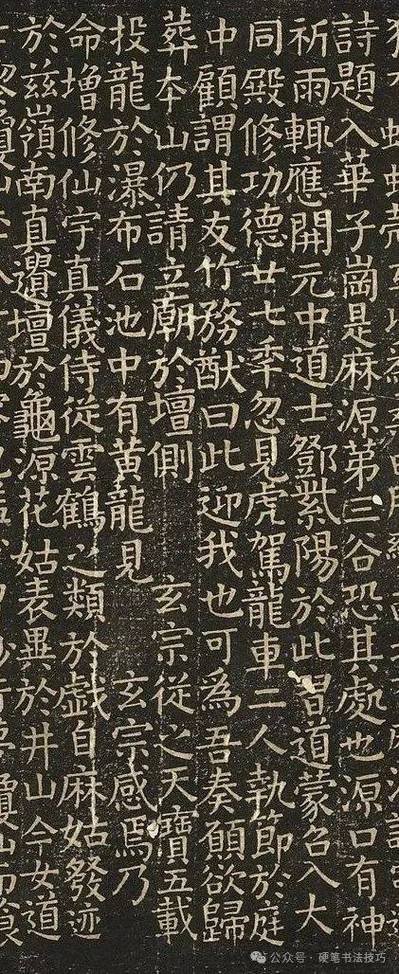 詩題入華子崗是麻源第三谷恐其處也源口有神
祈雨輒應開元中道士鄧紫陽於此習道蒙召入大
同殿修功德廿七秊忽見虎駕龍車二人執節於庭
中顧謂其友竹務猷曰此迎我也可為吾奏願欲歸
葬本山仍請立廟於壇側 玄宗從之天寶五載
投龍於瀑布石池中有黃龍見 玄宗感焉乃
命增修仙宇真儀侍從雲鶴之類於戲自麻姑發迹
於茲嶺南真遺壇於龜源花姑表異於井山今女道
公众号 · 硬笔书法技巧